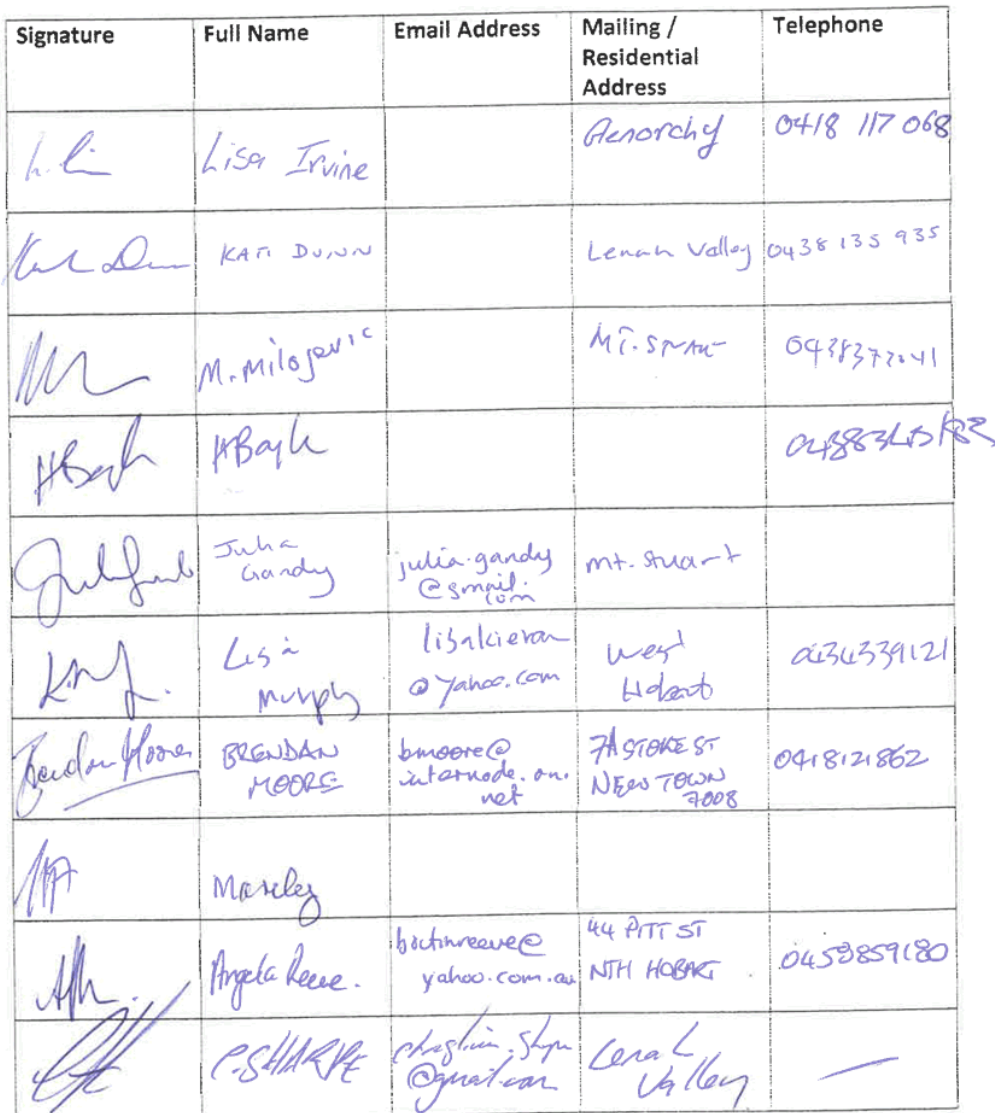 Signature Full Name Email Address Mailing / Residential Address Telephone
Lisa Irvine Glenorchy 0418 117 068
KATI DUNN Lenah Valley 0438 135 935
M. Milojevic MT. STUART
HBayle
Julia Gandy julia.gandy@gmail.com Mt. Stuart
Lisa Murphy lisakieran@yahoo.com West Hobart 0434339121
BRENDAN MOORE bmoore@internode.on.net 7A STOKE ST NEW TOWN 7008 0418121862
Angela Reeve. yahoo.com.au 44 PITT ST NTH HOBART 0459859180
C. SHARPE @gmail.com Lenah Valley —